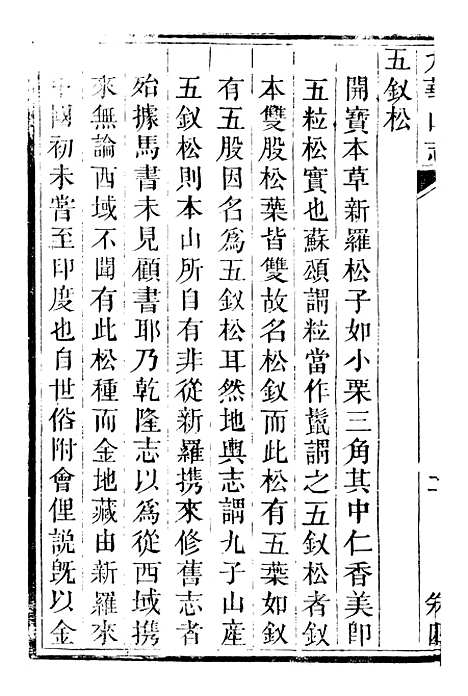 九華山志
卷四
五釵松
開寶本草新羅松子如小栗三角其中仁香美即
五粒松實也蘇頌謂粒當作鬣謂之五釵松者釵
本雙股松葉皆雙故名松釵而此松有五葉如釵
有五股因名為五釵松耳然地輿志謂九子山産
五釵松則本山所自有非從新羅携來修舊志者
殆據馬書未見顧書耶乃乾隆志以為從西域携
來無論西域不聞有此松種而金地藏由新羅來
中國初未嘗至印度也自世俗附會俚説既以金